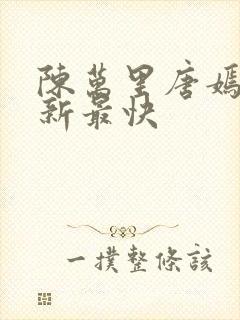 陳萬里唐嫣
新最快
一撲整條該